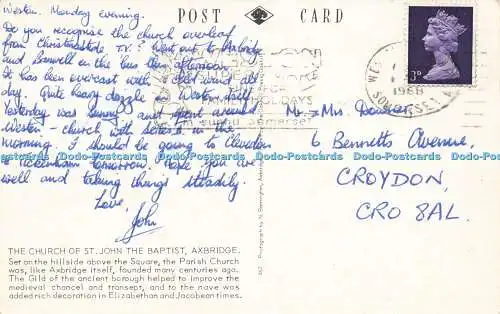 POST CARD
Weston. Monday evening.
Do you recognise the church overleaf
from Christmastide T.V.? Went out to Axbridge
and Banwell on the bus this afternoon.
It has been overcast with a cold wind all
day. Quite heavy drizzle in Weston itself.
Yesterday was sunny and spent around
Weston - church with in
the morning. I should be going to Clevedon
& Tickenham tomorrow. Hope you are
well and taking things steadily.
Love,
John
3D
WES
1968
SOMERSET
FOR
FAMILY HOLIDAYS
in sunny Somerset
Mr. & Mrs.
6 Bennetts Avenue,
CROYDON,
CRO 8AL.
Dodo-Postcards Dodo-Postcards Dodo-Postcards Dodo-Postcards Dodo-Postcards Dodo-Postcards
THE CHURCH OF ST. JOHN THE BAPTIST, AXBRIDGE.
Set on the hillside above the Square, the Parish Church
was, like Axbridge itself, founded many centuries ago.
The Gild of the ancient borough helped to improve the
medieval chancel and transept, and to the nave was
added rich decoration in Elizabethan and Jacobean times.